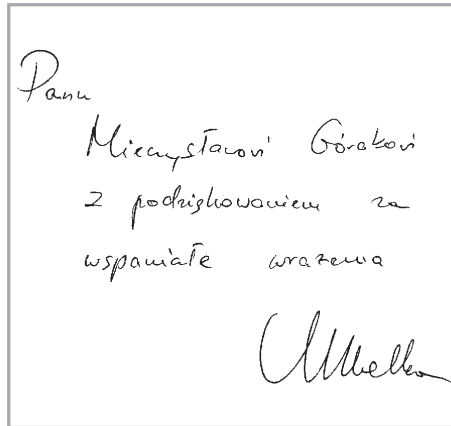 Panu
Mieczysławowi Górakowi
z podziękowaniem za
wspaniałe wrażenia